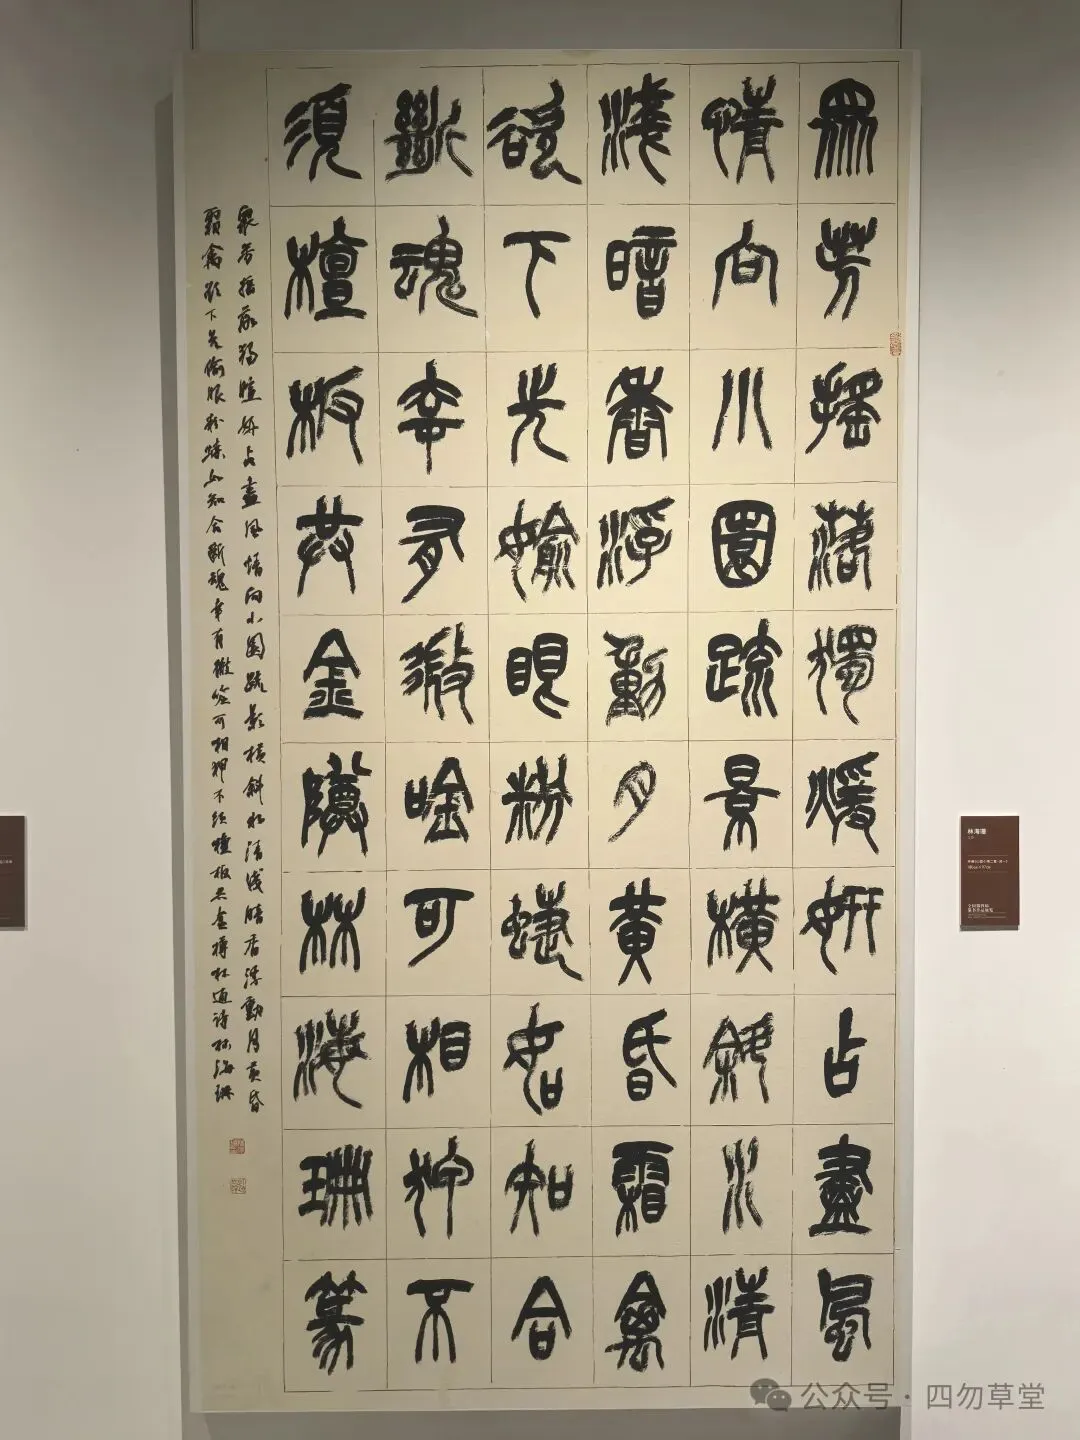 眾芳搖落獨煖妍占盡風
情向小園疏景橫斜水清
淺暗香浮動月黃昏霜禽
欲下先婾眼粉蝶如知合
斷魂幸有微唫可相狎不
須檀板共金尊林海珊篆
衆芳搖落獨暄妍占盡風情向小園疏影橫斜水清淺暗香浮動月黃昏
霜禽欲下先偷眼粉蝶如知合斷魂幸有微吟可相狎不須檀板共金樽林逋詩林海珊
林海珊
公众号 · 四勿草堂